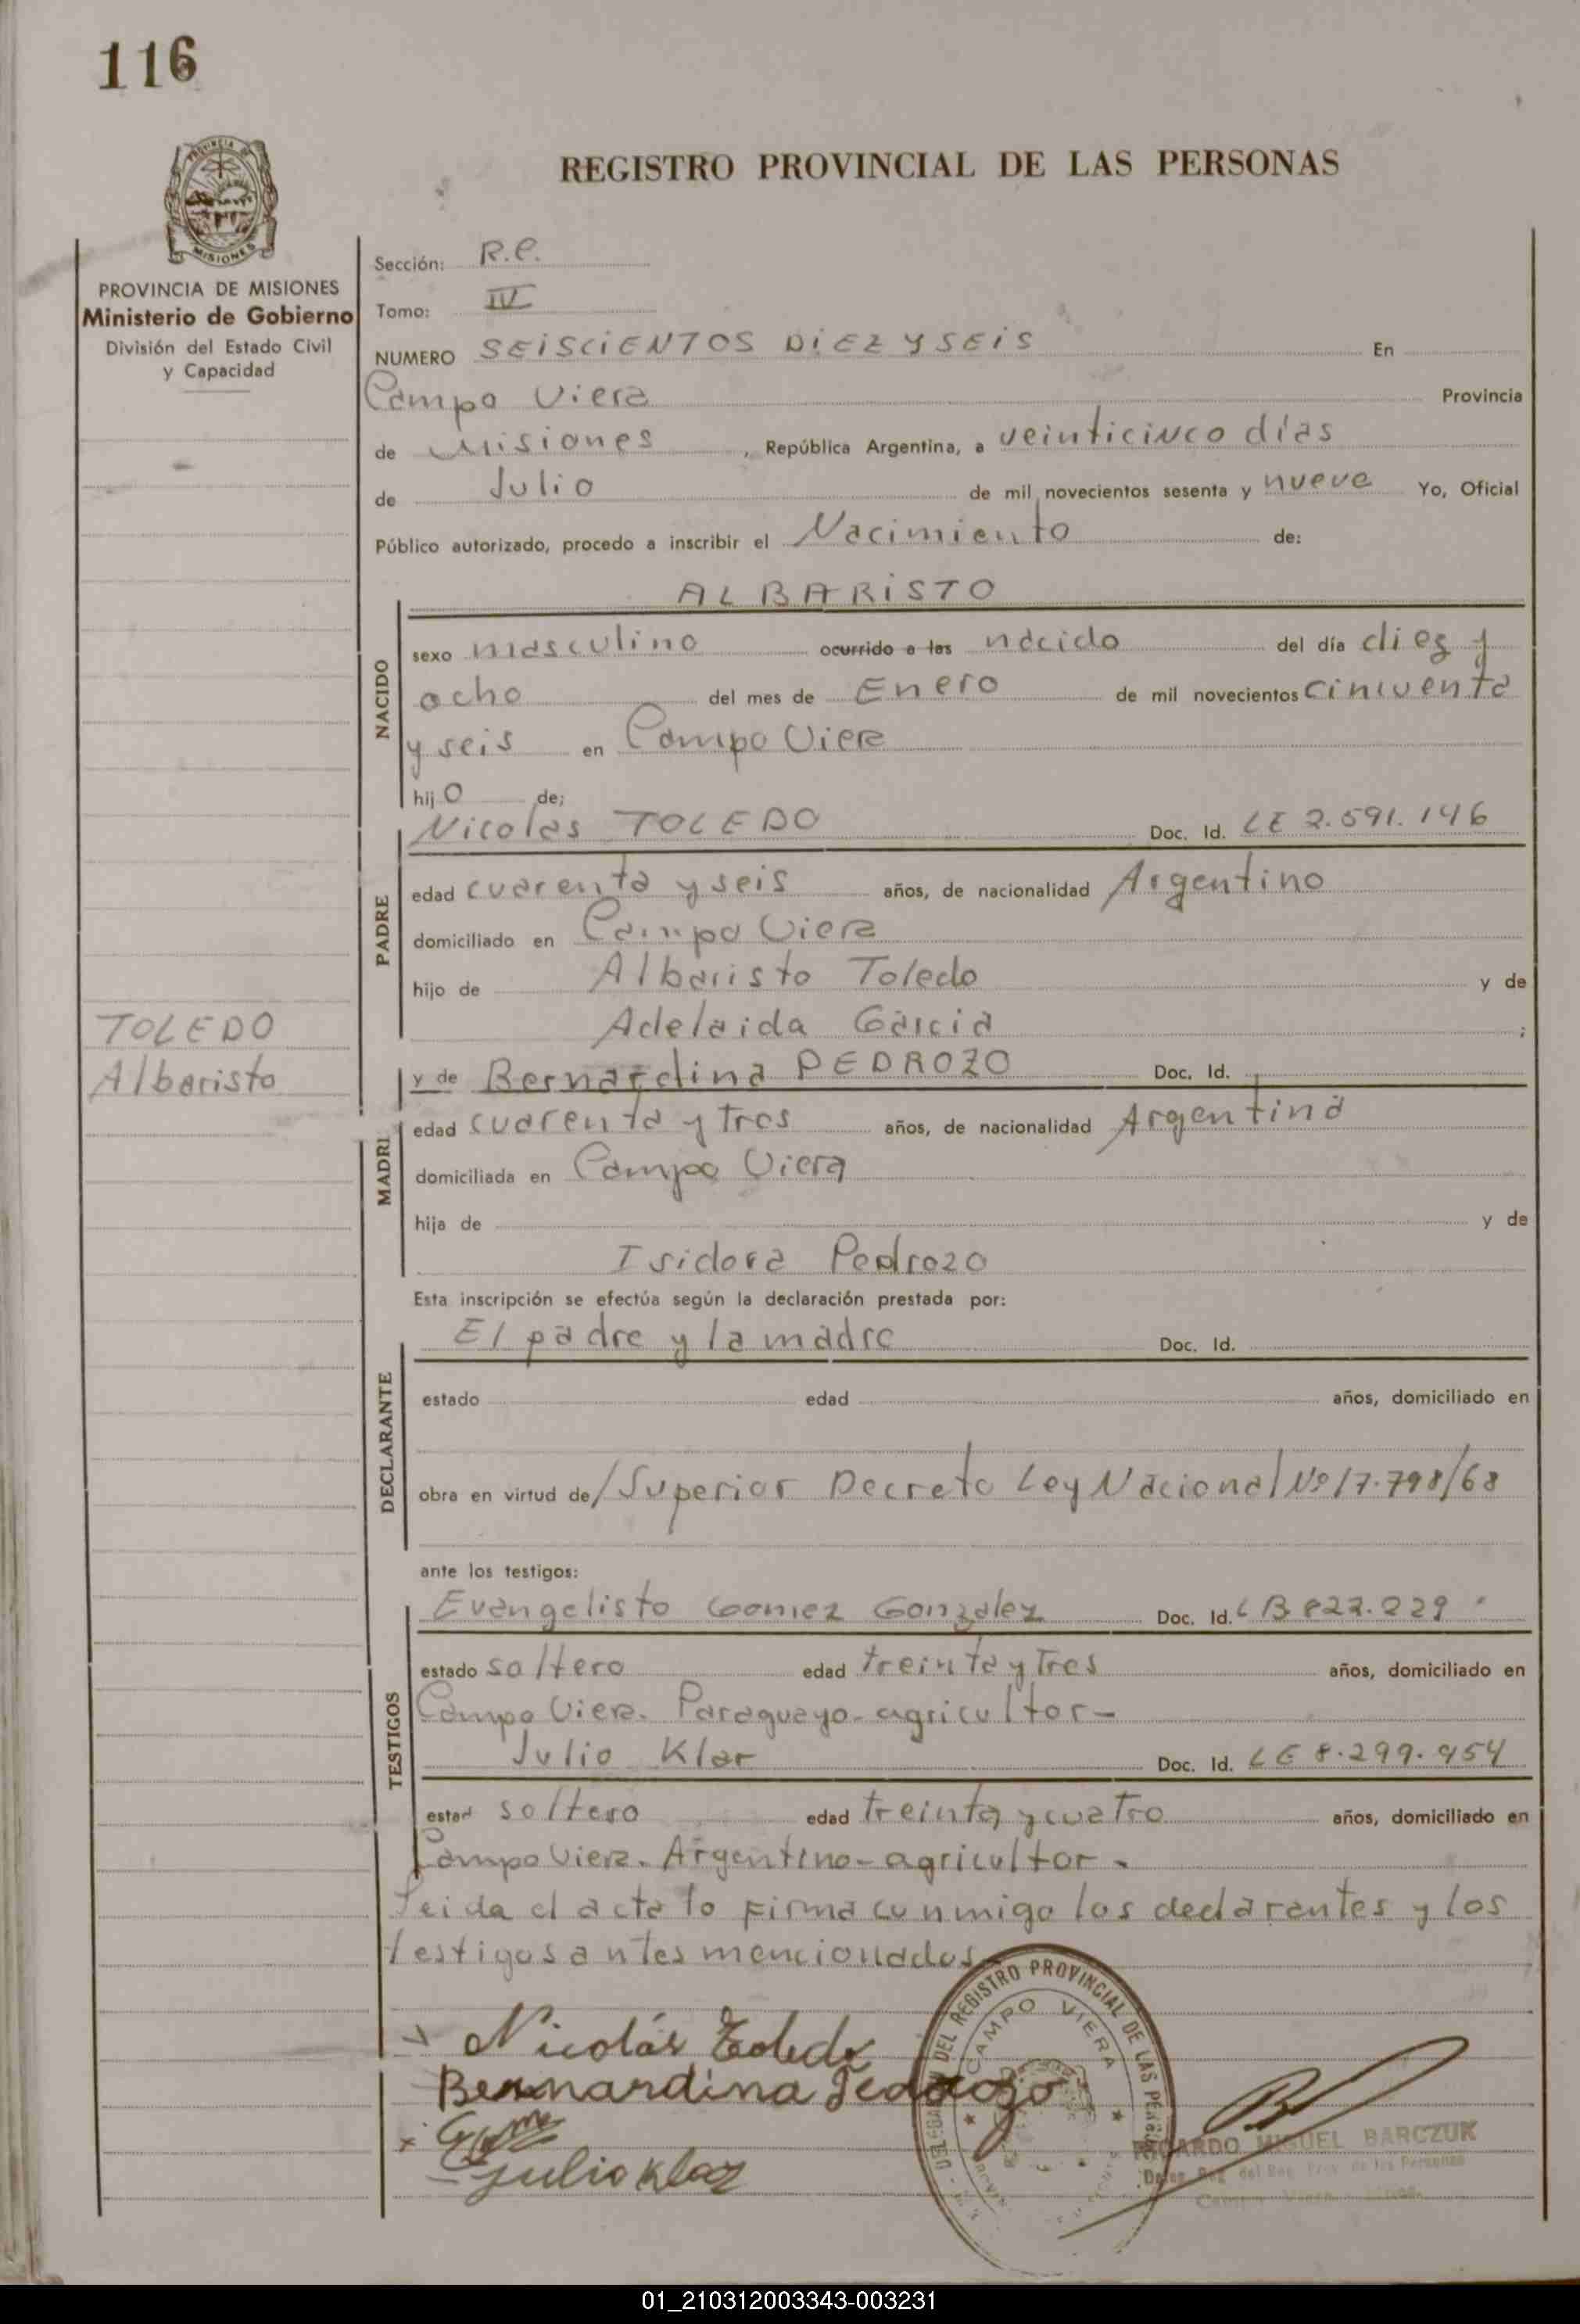 116
REGISTRO PROVINCIAL DE LAS PERSONAS
PROVINCIA DE MISIONES
Ministerio de Gobierno
División del Estado Civil
y Capacidad
Sección: R.C.
Tomo: IV
NUMERO SEISCIENTOS DIEZ Y SEIS En
Campo Viera Provincia
de Misiones, República Argentina, a veinticinco días
de Julio de mil novecientos sesenta y nueve Yo, Oficial
Público autorizado, procedo a inscribir el Nacimiento de:
NACIDO
ALBARISTO
sexo masculino ocurrido a las nacido del día diez y
ocho del mes de Enero de mil novecientos cincuenta
y seis en Campo Viera
hijo de;
PADRE
Nicolas TOLEDO Doc. Id. LE 2.591.146
edad cuarenta y seis años, de nacionalidad Argentino
domiciliado en Campo Viera
hijo de Albaristo Toledo y de
Adelaida Garcia ;
TOLEDO
Albaristo
MADRE
y de Bernardina PEDROZO Doc. Id.
edad cuarenta y tres años, de nacionalidad Argentina
domiciliada en Campo Viera
hija de y de
Isidora Pedrozo
Esta inscripción se efectúa según la declaración prestada por:
DECLARANTE
El padre y la madre Doc. Id.
estado edad años, domiciliado en
obra en virtud de/Superior Decreto Ley Nacional Nº 17.798/68
ante los testigos:
TESTIGOS
Evangelisto Gomez Gonzalez Doc. Id.
estado soltero edad treinta y tres años, domiciliado en
Campo Viera. Paraguayo-agricultor-
Julio Klar Doc. Id. LE 8.299.954
estad soltero edad treinta y cuatro años, domiciliado en
Campo Viera. Argentino-agricultor.
Leida el acta lo firma conmigo los declarantes y los
testigos antes mencionados
Nicolás Toledo
Bernardina Pedrozo
Julio Klar
DEL REGISTRO PROVINCIAL DE LAS
CAMPO VIERA
RICARDO MIGUEL BARCZUK
01_210312003343-003231